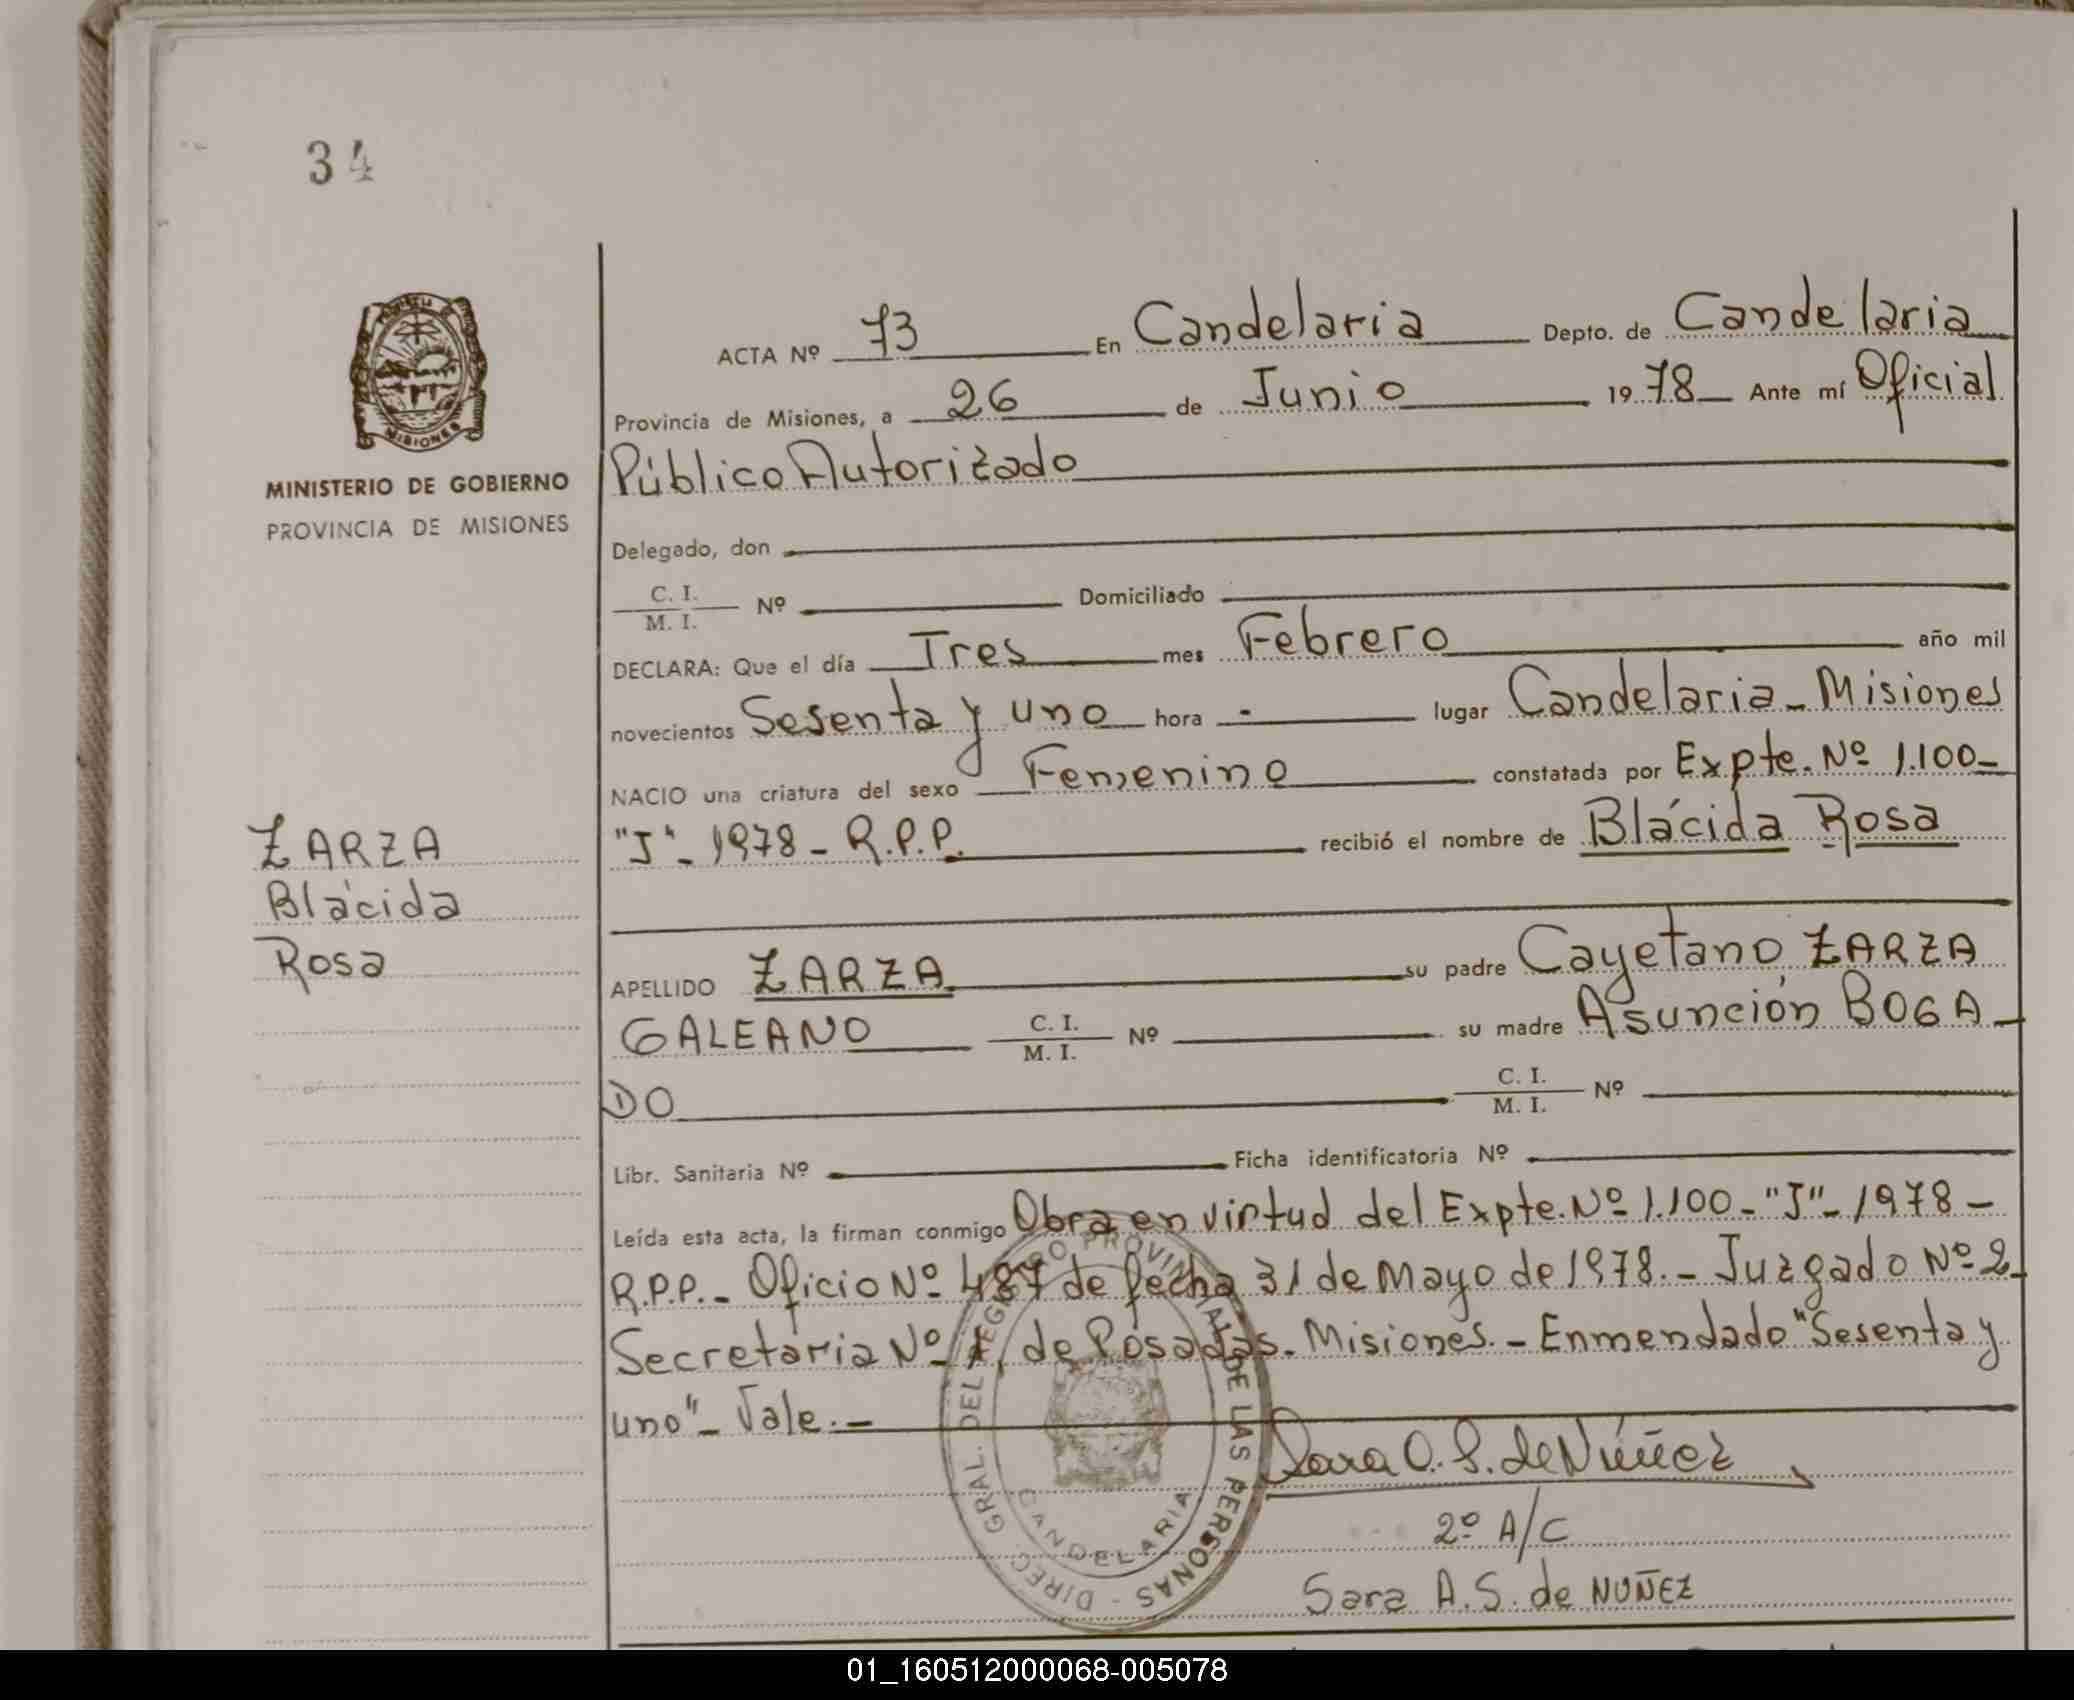 34
MISIONES
MINISTERIO DE GOBIERNO
PROVINCIA DE MISIONES
ZARZA
Blácida
Rosa
ACTA Nº 73 En Candelaria Depto. de Candelaria
Provincia de Misiones, a 26 de Junio 1978 Ante mí Oficial
Público Autorizado
Delegado, don
C. I.
M. I. Nº Domiciliado
DECLARA: Que el día Tres mes Febrero año mil
novecientos Sesenta y uno hora - lugar Candelaria - Misiones
NACIO una criatura del sexo Femenino constatada por Expte. Nº 1.100-
"J"- 1978 - R.P.P. recibió el nombre de Blácida Rosa
APELLIDO ZARZA su padre Cayetano ZARZA
GALEANO C. I. M. I. Nº su madre Asunción BOGA-
DO C. I. M. I. Nº
Libr. Sanitaria Nº Ficha identificatoria Nº
Leída esta acta, la firman conmigo Obra en virtud del Expte. Nº 1.100 - "J" - 1978 -
R.P.P. - Oficio Nº 487 de fecha 31 de Mayo de 1978. - Juzgado Nº 2
Secretaria Nº de Posadas. Misiones. - Enmendado "Sesenta y
uno" - Vale. -
DIREC. GRAL. DEL REGISTRO PROVINCIAL DE LAS PERSONAS -
CANDELARIA
Sara A. S. de Núñez
2º A/C
Sara A.S. de NUÑEZ
01_160512000068-005078